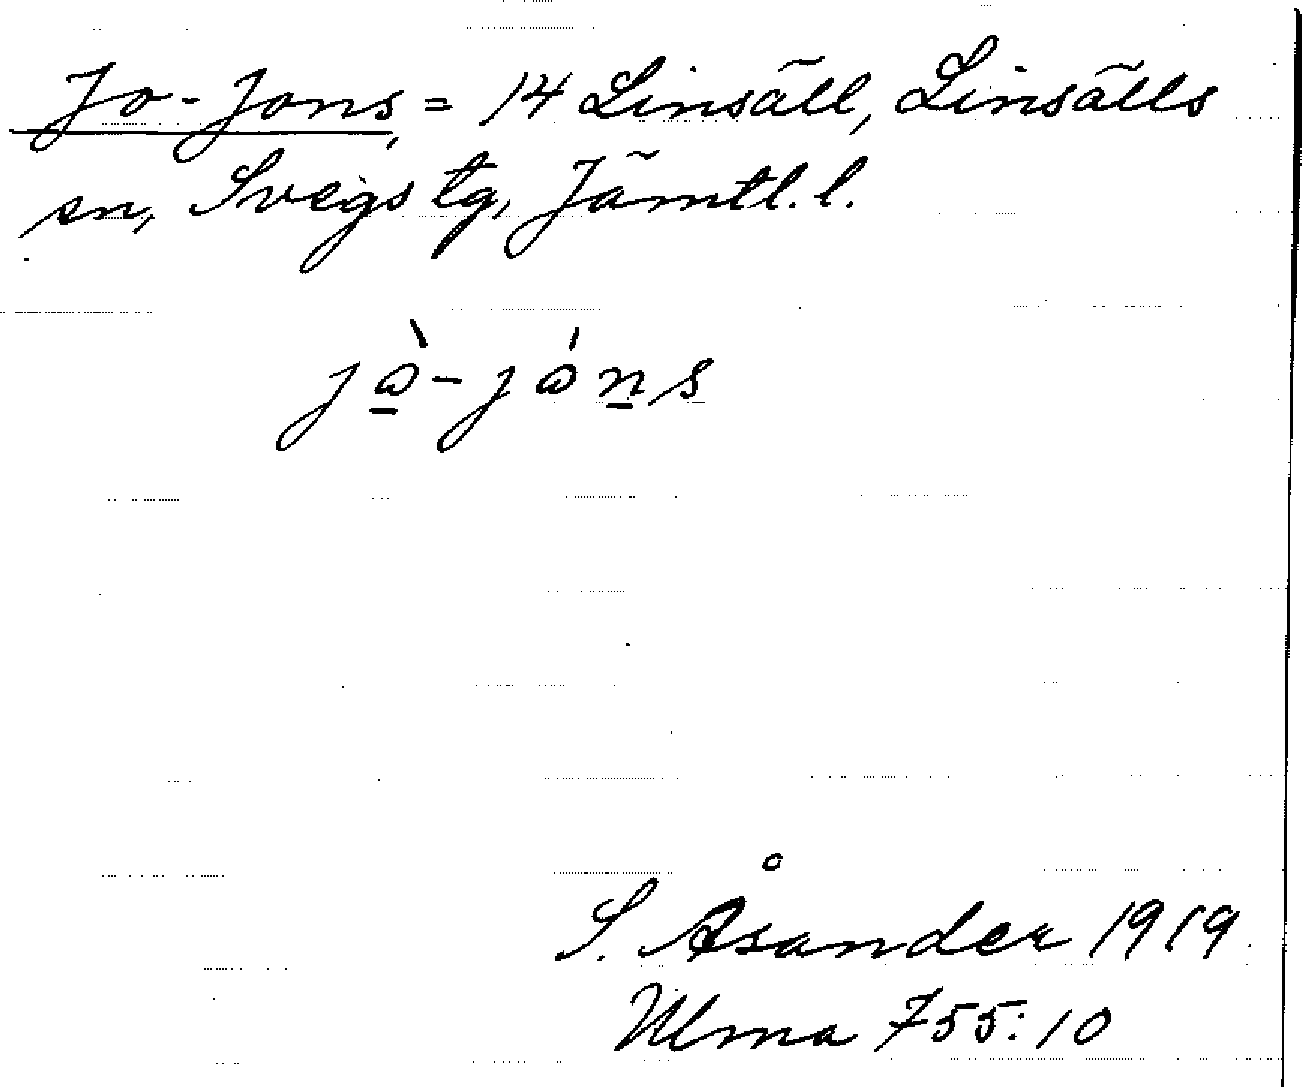 Jo-Jons, = 14 Linsäll, Linsälls
sn, Svegs tg, Jämtl. l.
jò̠-jón̠s
S. Åsander 1919
Ulma 755:10